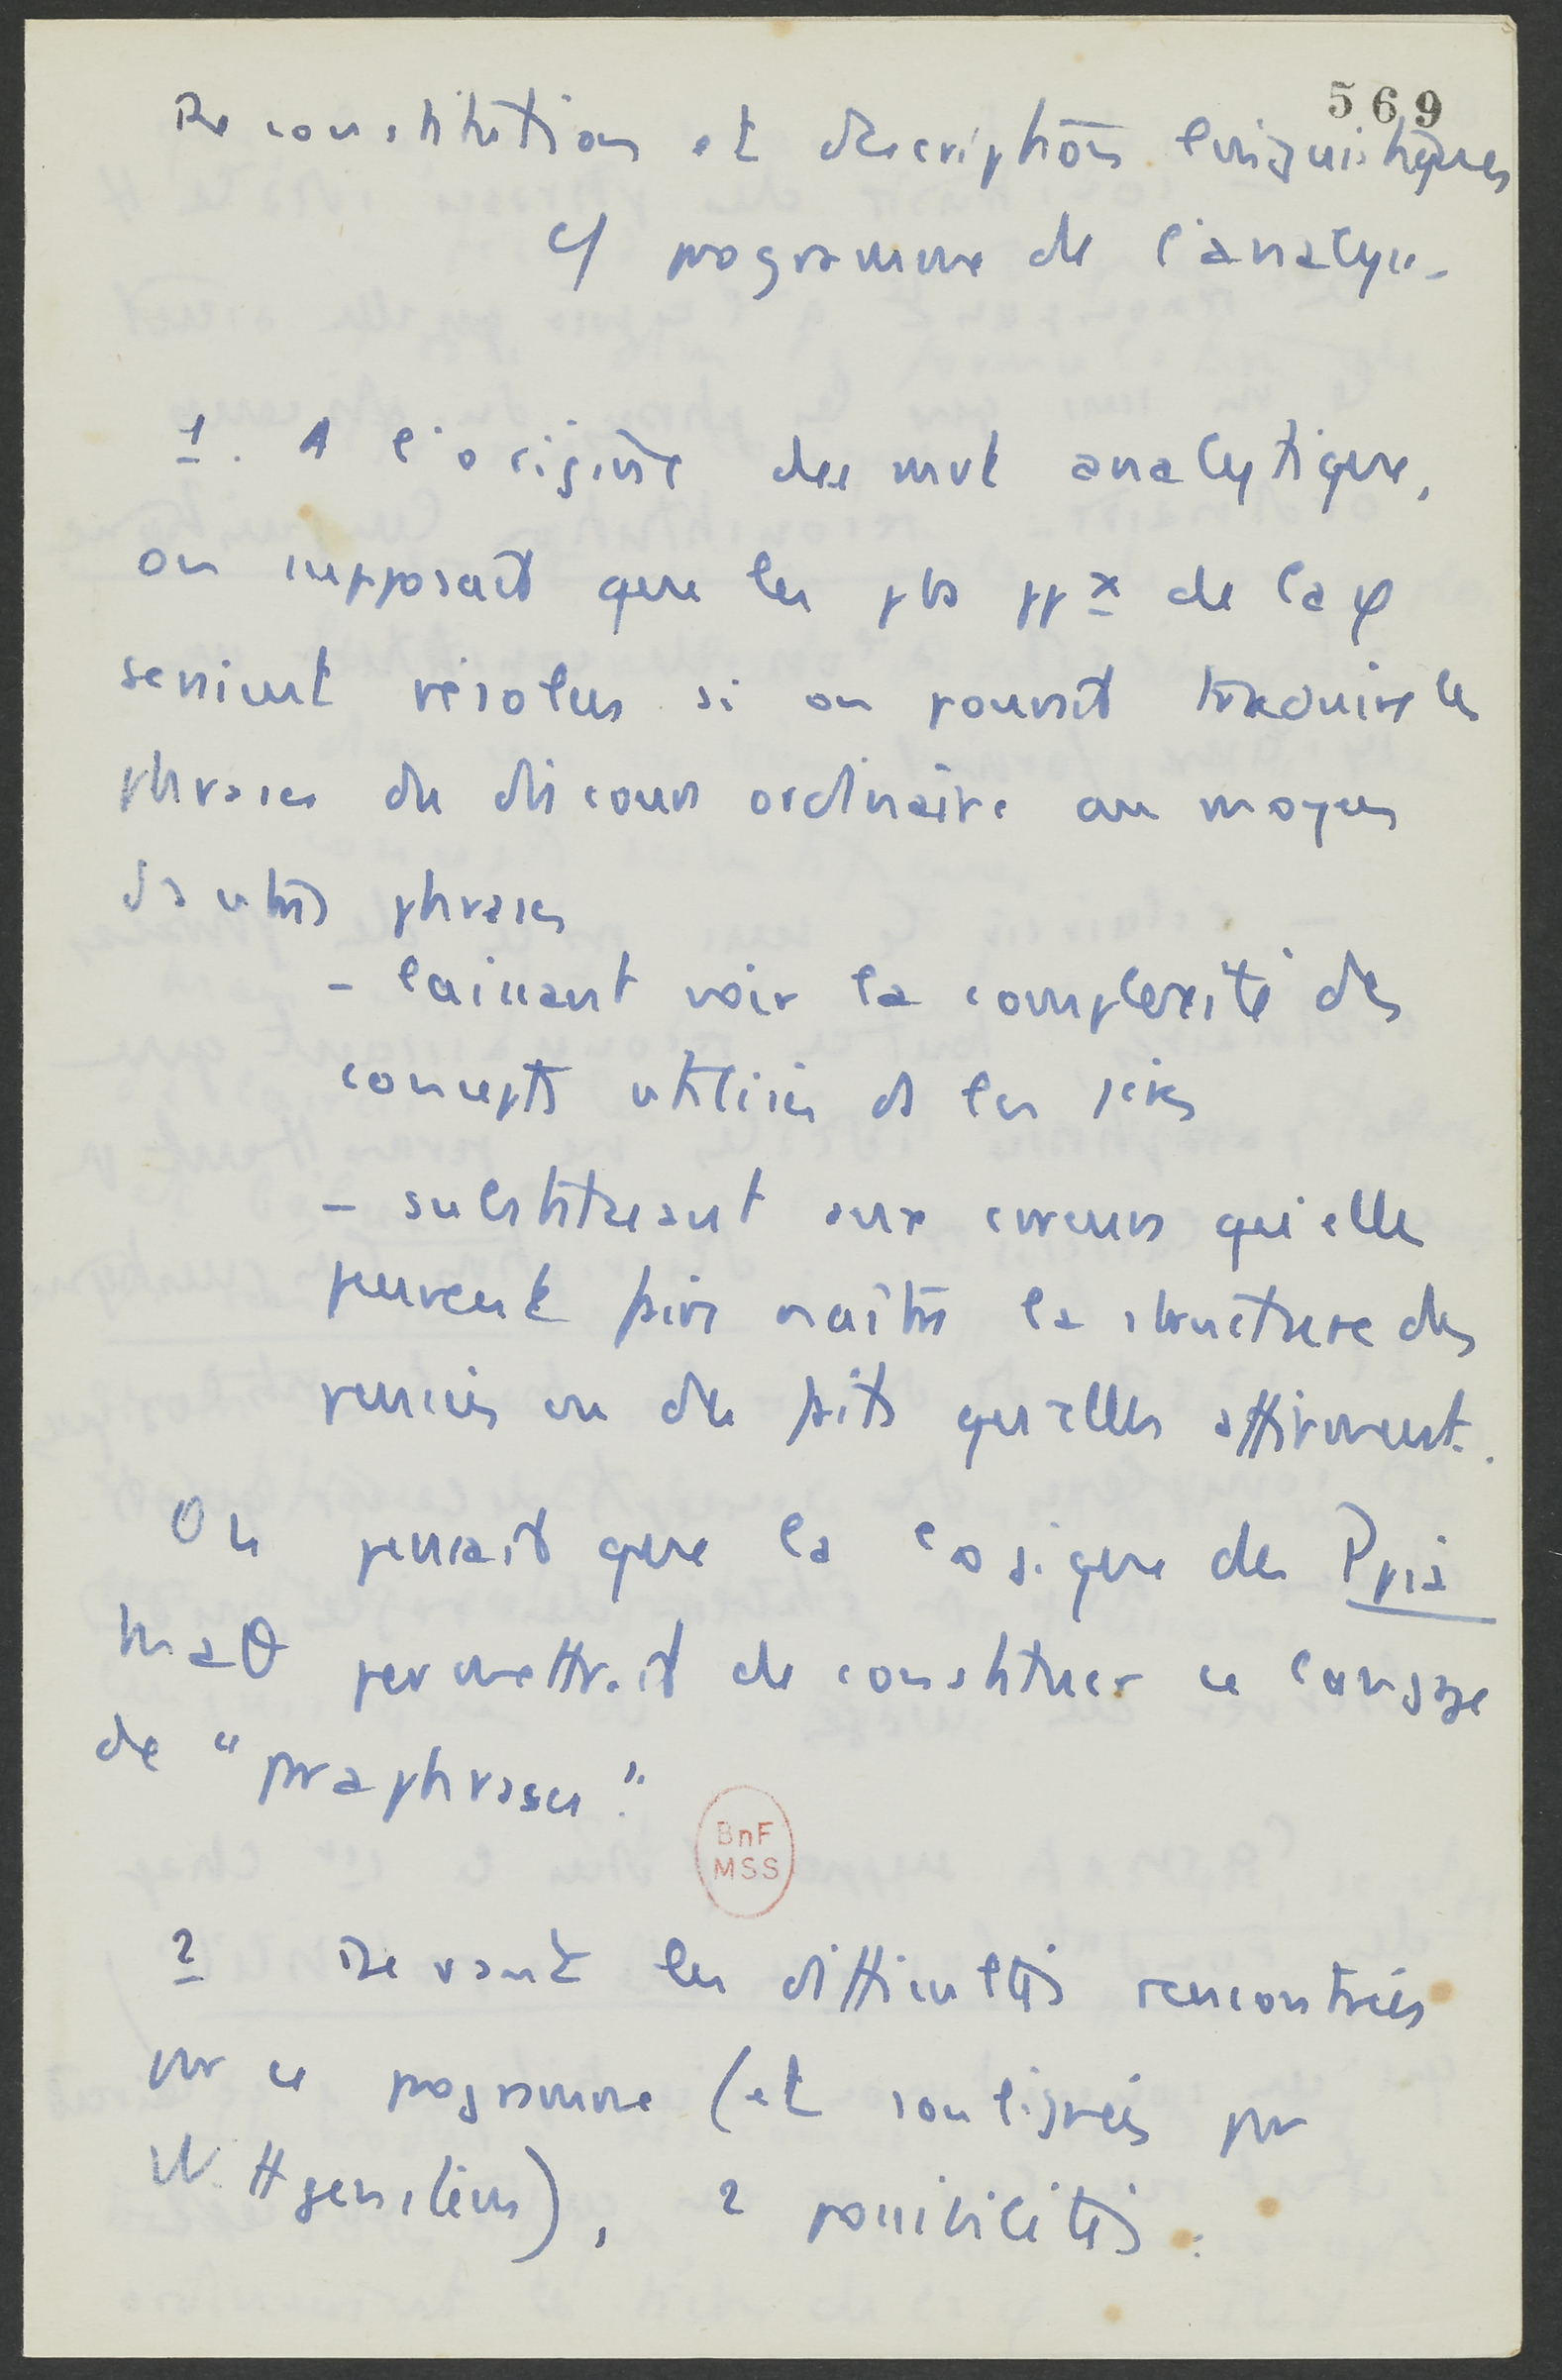 569
Reconstitution et description linguistiques
c/ programme de l'analyse.
1. A l'origine du mvt analytique,
on supposait que les pbs ppx de la φ
seraient résolus si on pouvait traduire les
phrases du discours ordinaire au moyen
d'autres phrases
- laissant voir la complexité des
concepts utilisés ds les 1ères
- substituant aux erreurs qu'elles
peuvent faire naître la structure des
pensées ou des faits qu'elles affirment.
On pensait que la logique des Ppia
Maθ permettrait de constituer ce langage
de "paraphrases".
BnF
MSS
2 Devant les difficultés rencontrées
par ce programme (et soulignées par
Wittgenstein), 2 possibilités :